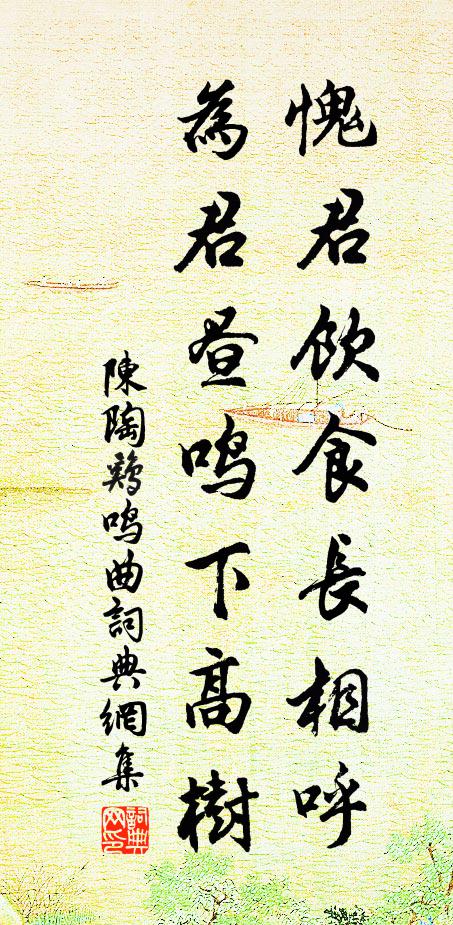 愧君飲食長相呼
為君晝鳴下高樹
陳陶鷄鳴曲詞典網集
詞典網印